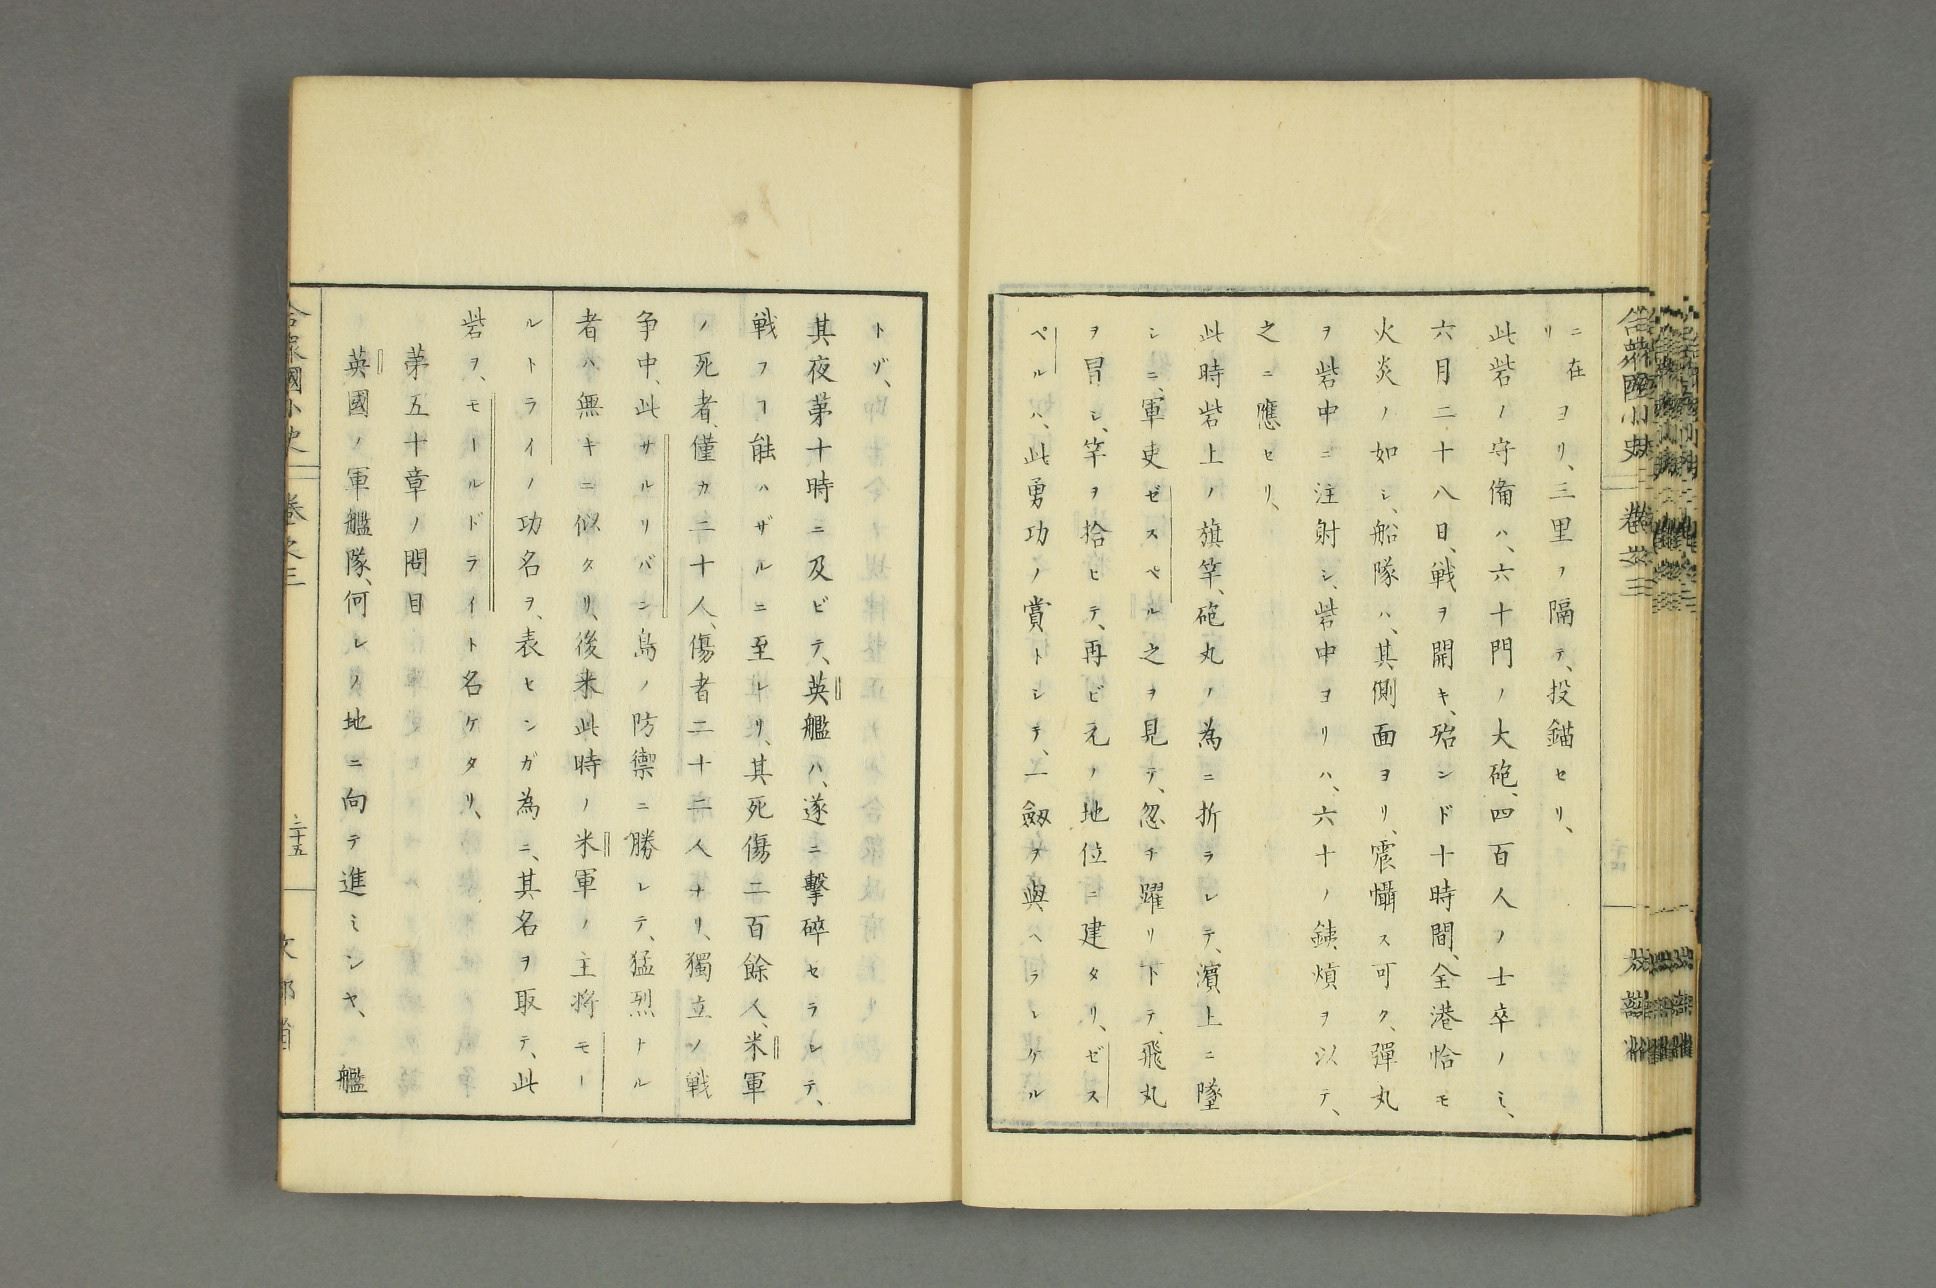 ニ在ヨリ、三里ヲ隔テ、投錨セリ、
リ
此砦ノ守備ハ、六十門ノ大砲、四百人ノ士卒ノミ、
六月二十八日、戦ヲ開キ、殆ンド十時間、全港恰モ
火炎ノ如シ、船隊ハ、其側面ヨリ、震懾ス可ク、彈丸
ヲ砦中ニ注射シ、砦中ヨリハ、六十ノ銕熕ヲ以テ、
之ニ應セリ、
此時砦上ノ旗竿、砲丸ノ為ニ折ラレテ、濱上ニ墜
シニ、軍吏ゼスペル之ヲ見テ、忽チ躍リ下テ、飛丸
ヲ冒シ、竿ヲ拾ヒテ、再ビ元ノ地位ニ建タリ、ゼス
ペルハ、此勇功ノ賞トシテ、一劔ヲ與ヘラレケル
合衆國小史
卷之三
トゾ、
其夜苐十時ニ及ビテ、英艦ハ、遂ニ擊碎セラレテ、
戦フヿ能ハザルニ至レリ、其死傷二百餘人、米軍
ノ死者、僅カ二十人、傷者二十二人ナリ、獨立ノ戦
争中、此サルリバン島ノ防禦ニ勝レテ、猛烈トル
者ハ無キニ似タリ、後来此時ノ米軍ノ主将モー
ルトライノ功名ヲ、表センガ為ニ、其名ヲ取テ、此
砦ヲ、モールドライト名ケタリ、
苐五十章ノ問目
英國ノ軍艦隊、何レノ地ニ向テ進ミシヤ、艦
合衆國小史
卷之三
二十五
文部省